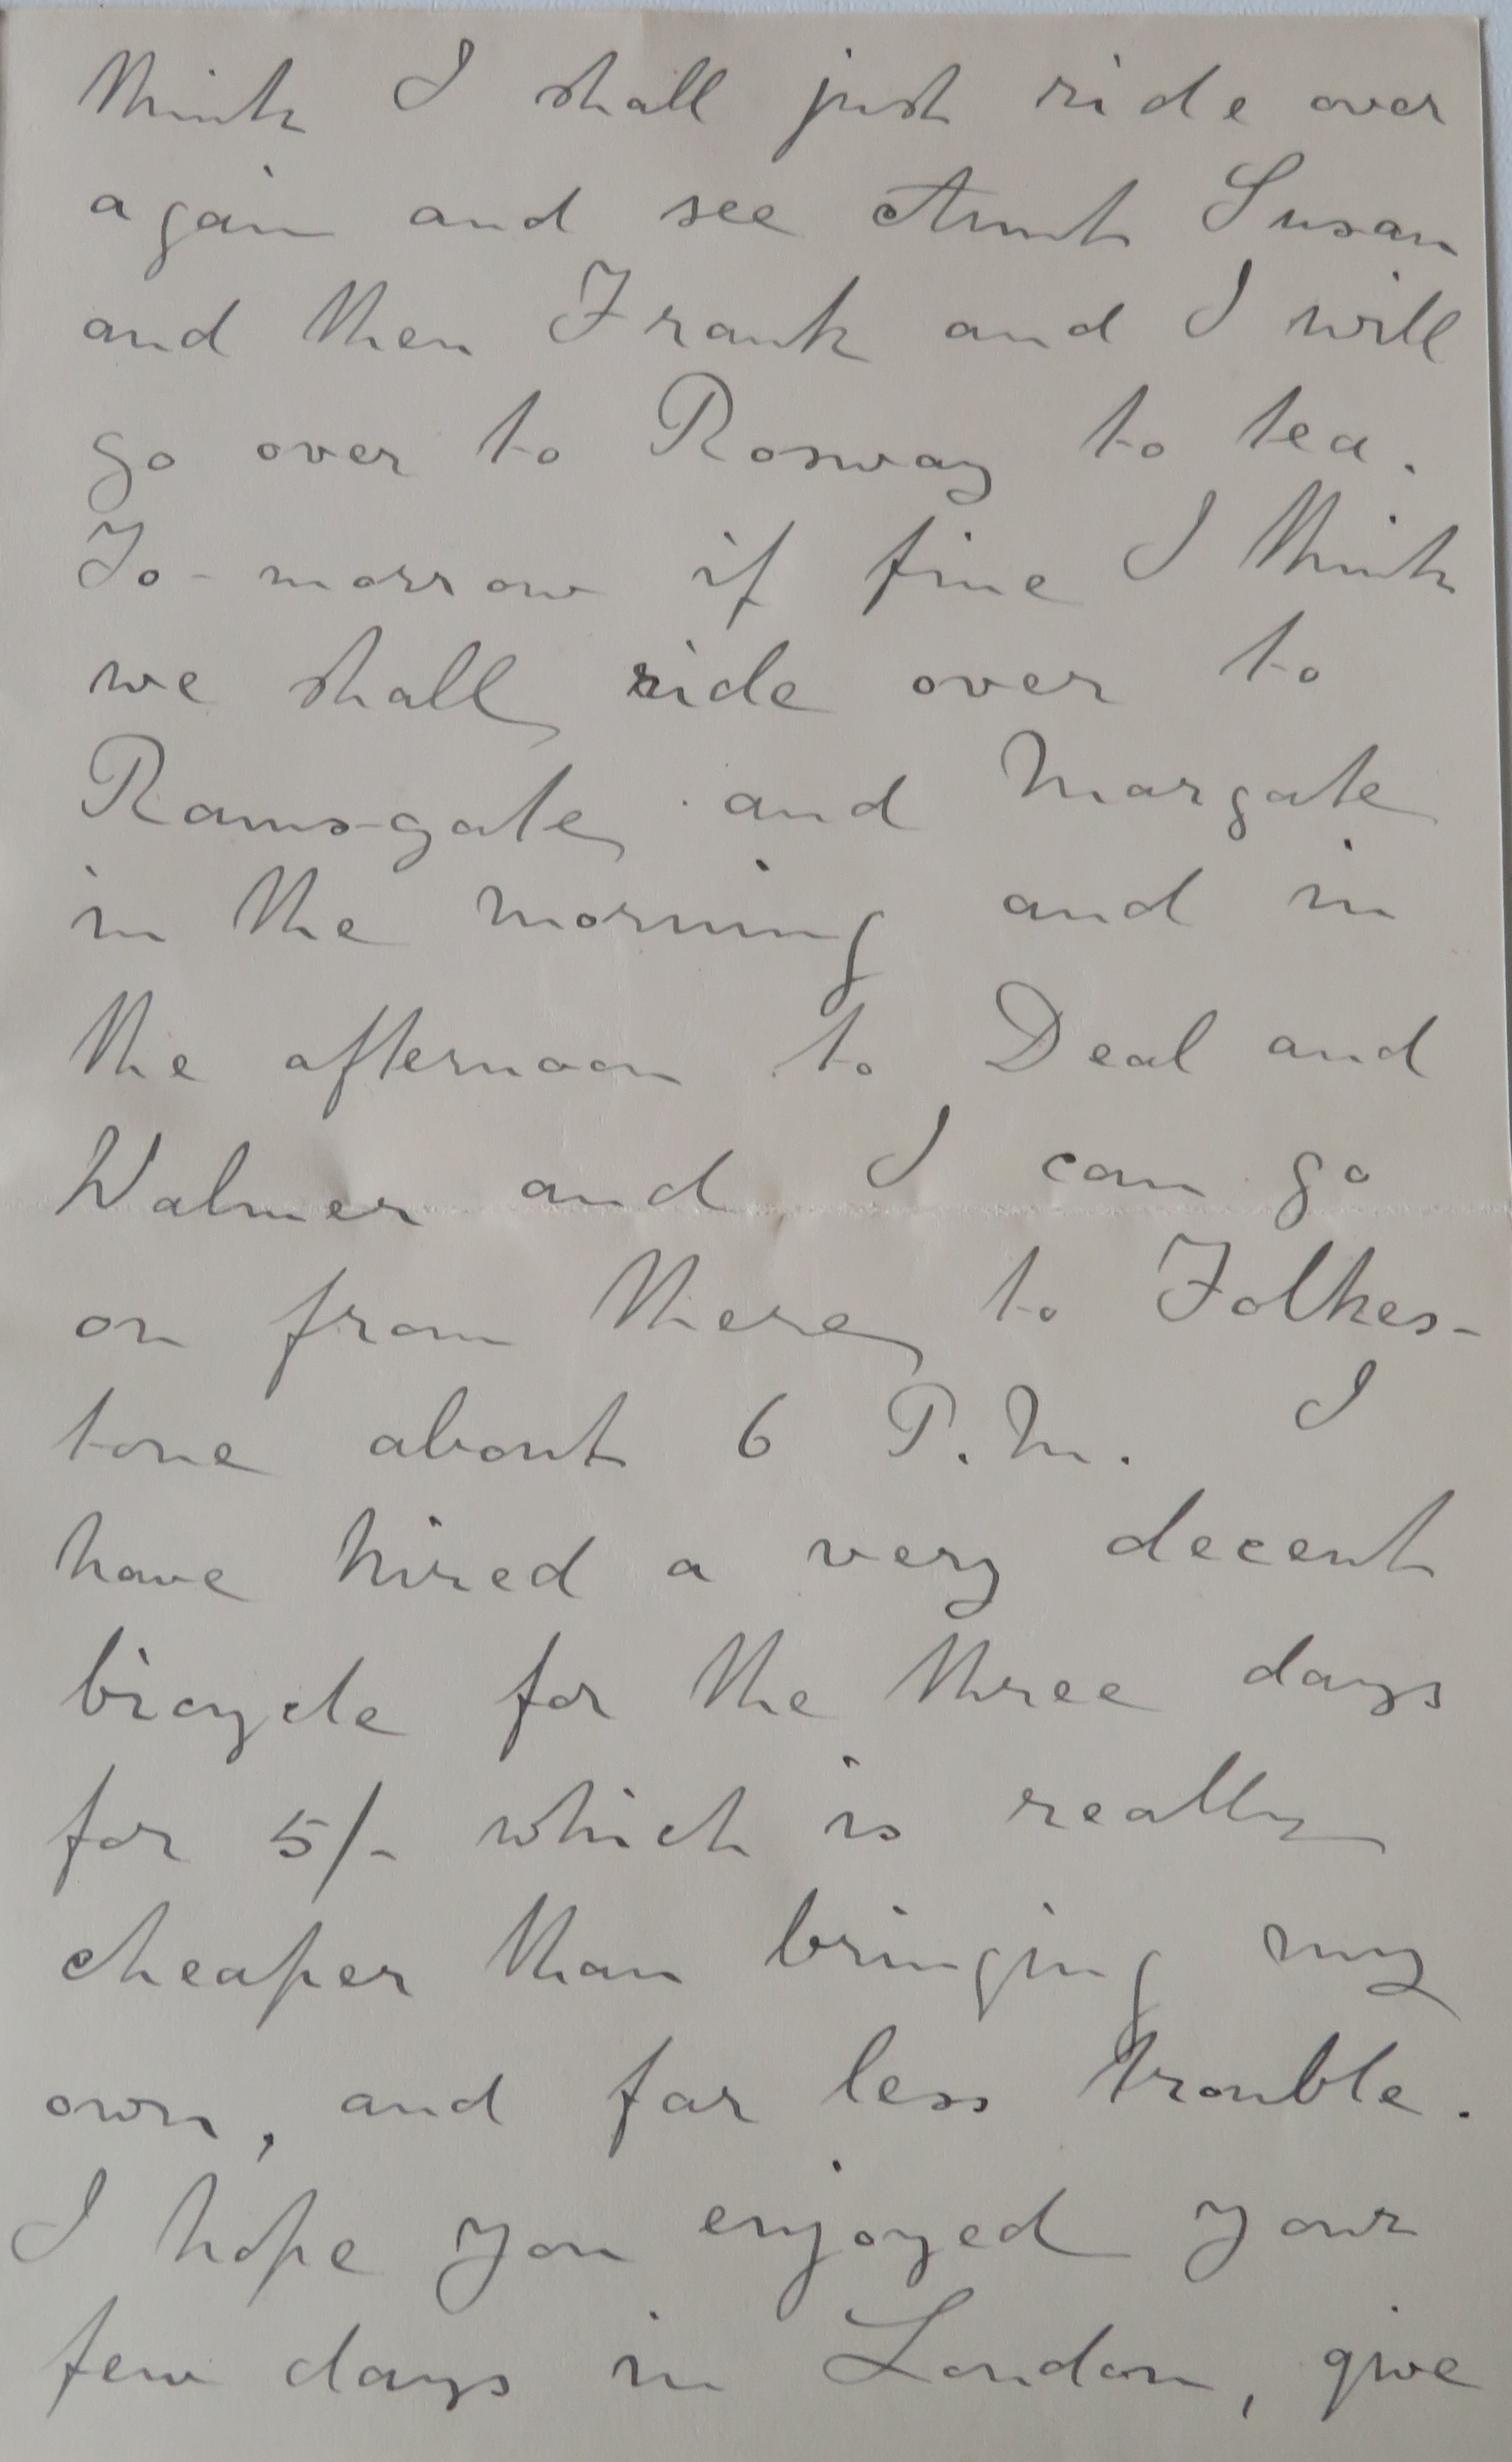 think I shall just ride over
again and see Aunt Susan
and then Frank and I will
go over to Rosway to tea.
To-morrow if fine I think
we shall ride over to
Ramsgate and Margate
in the morning and in
the afternoon to Deal and
Walmer and I can go
on from there to Folkes-
tone about 6 P.M. I
have hired a very decent
bicycle for the three days
for 5/- which is really
cheaper than bringing my
own, and far less trouble.
I hope you enjoyed your
few days in London, give